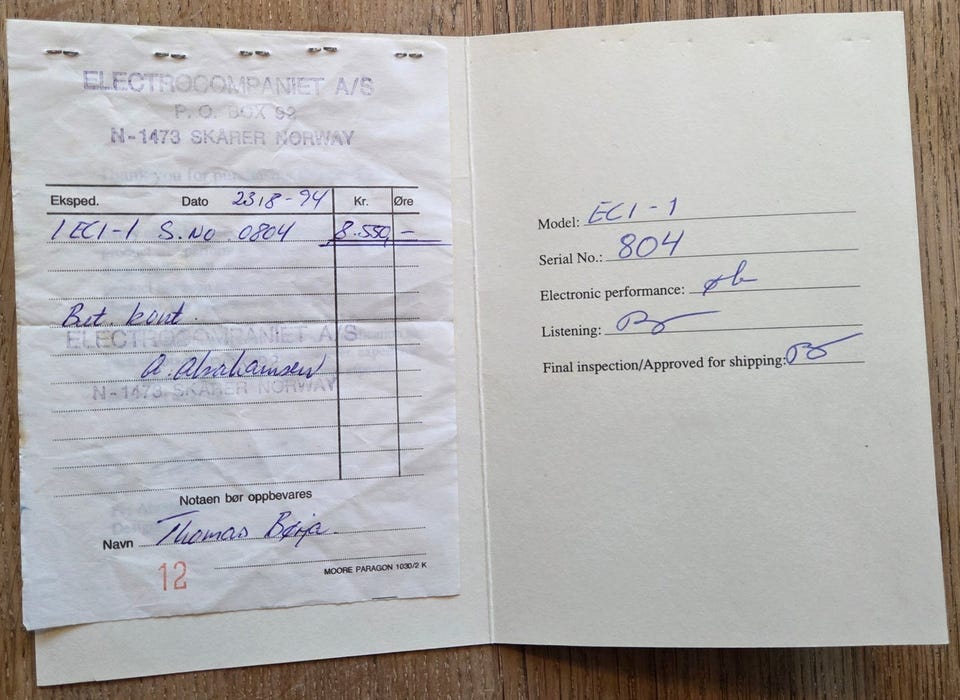 ELECTROCOMPANIET A/S
P. O. BOX 92
N-1473 SKÅRER NORWAY
Thank you for purchasing
Eksped. Dato 23/8-94 Kr. Øre
1 ECI-1 S.No 0804 8.550,-
Bet. kont.
ELECTROCOMPANIET A/S
A. Abrahamsen
N-1473 SKÅRER NORWAY
Notaen bør oppbevares
Navn Thomas
12
MOORE PARAGON 1030/2 K
Model: ECI-1
Serial No.: 804
Electronic performance:
Listening:
Final inspection/Approved for shipping: